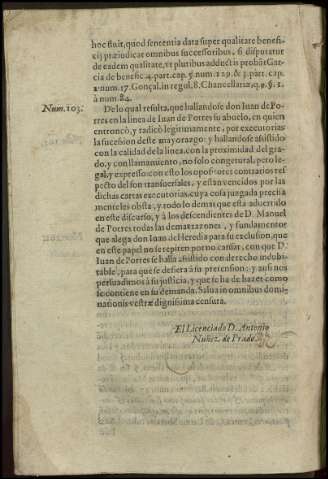 hoc fluit, quod sententia data super qualitate benefi-
cij præiudicat omnibus successoribus, si disputatur
de eadem qualitate, vt pluribus adductis probat Gar
cia de benefic. 4. part. cap. 5. num. 129. & 3. part. cap.
2. num. 17. Gonçal. in regul. 8. Chancellariæ, q. 9. §. 1.
à num. 84.
Num. 103. De lo qual resulta, que hallandose don Iuan de Po-
rres en la linea de Iuan de Porres su abuelo, en quien
entroncò, y radicò legitimamente, por executorias
la sucession deste mayorazgo: y hallandose assistido
con la calidad de la linea, con la proximidad del gra-
do, y con llamamiento, no solo congetural, pero le-
gal, y expresso: con esto los opositores contrarios res
pecto del son transuersales, y estan vencidos por las
dichas cartas executorias, cuya cosa juzgada precisa
mente les obsta, y todo lo demas que està aduertido
en este discurso, y à los descendientes de D. Manuel
de Porres todas las demas razones, y fundamentos
que alega don Iuan de Heredia para su exclusion, que
en este papel no se repiten por no cansar, con que D.
Iuan de Porres se halla assistido con derecho indubi-
table, para que se defiera à su pretension: y assi nos
persuadimos à su justicia, y que se ha de hazer como
se contiene en su demanda. Salua in omnibus domi-
nationis vestræ dignissima censura.
El Licenciado D. Antonio
Nuñez de Prado.